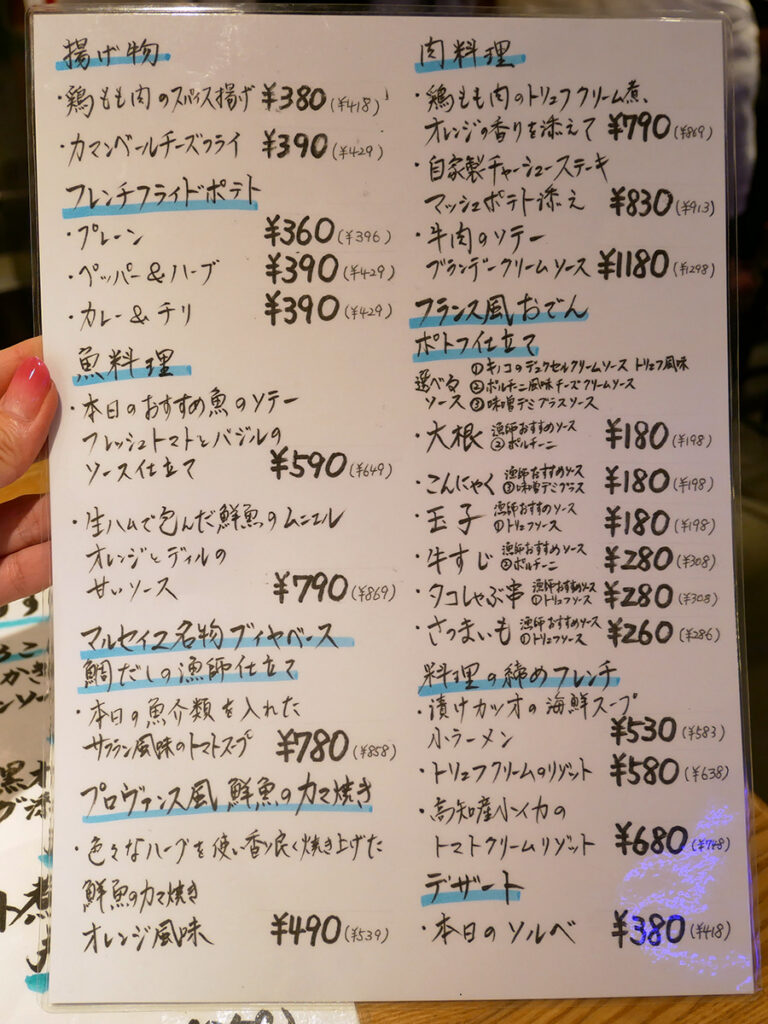 揚げ物
・鶏もも肉のスパイス揚げ ¥380(¥418)
・カマンベールチーズフライ ¥390(¥429)
フレンチフライドポテト
・プレーン ¥360(¥396)
・ペッパー&ハーブ ¥390(¥429)
・カレー&チリ ¥390(¥429)
魚料理
・本日のおすすめ魚のソテー
フレッシュトマトとバジルの
ソース仕立て ¥590(¥649)
・生ハムで包んだ鮮魚のムニエル
オレンジとディルの
甘いソース ¥790(¥869)
マルセイユ名物ブイヤベース
鯛だしの漁師仕立て
・本日の魚介類を入れた
サフラン風味のトマトスープ ¥780(¥858)
プロヴァンス風 鮮魚のカマ焼き
・色々なハーブを使い香り良く焼き上げた
鮮魚のカマ焼き
オレンジ風味 ¥490(¥539)
肉料理
・鶏もも肉のトリュフクリーム煮、
オレンジの香りを添えて ¥790(¥869)
・自家製チャーシューステーキ
マッシュポテト添え ¥830(¥913)
・牛肉のソテー
ブランデークリームソース ¥1180(¥1298)
フランス風おでん
ポトフ仕立て
選べるソース
①キノコのデュクセルクリームソース トリュフ風味
②ポルチーニ風味チーズクリームソース
③味噌デミグラスソース
・大根 漁師おすすめソース ②ポルチーニ ¥180(¥198)
・こんにゃく 漁師おすすめソース ③味噌デミグラス ¥180(¥198)
・玉子 漁師おすすめソース ①トリュフソース ¥180(¥198)
・牛すじ 漁師おすすめソース ②ポルチーニ ¥280(¥308)
・タコしゃぶ串 漁師おすすめソース ①トリュフソース ¥280(¥308)
・さつまいも 漁師おすすめソース ①トリュフソース ¥260(¥286)
料理の締めフレンチ
・漬けカツオの海鮮スープ
小ラーメン ¥530(¥583)
・トリュフクリームのリゾット ¥580(¥638)
・高知産小イカの
トマトクリームリゾット ¥680(¥748)
デザート
・本日のソルベ ¥380(¥418)